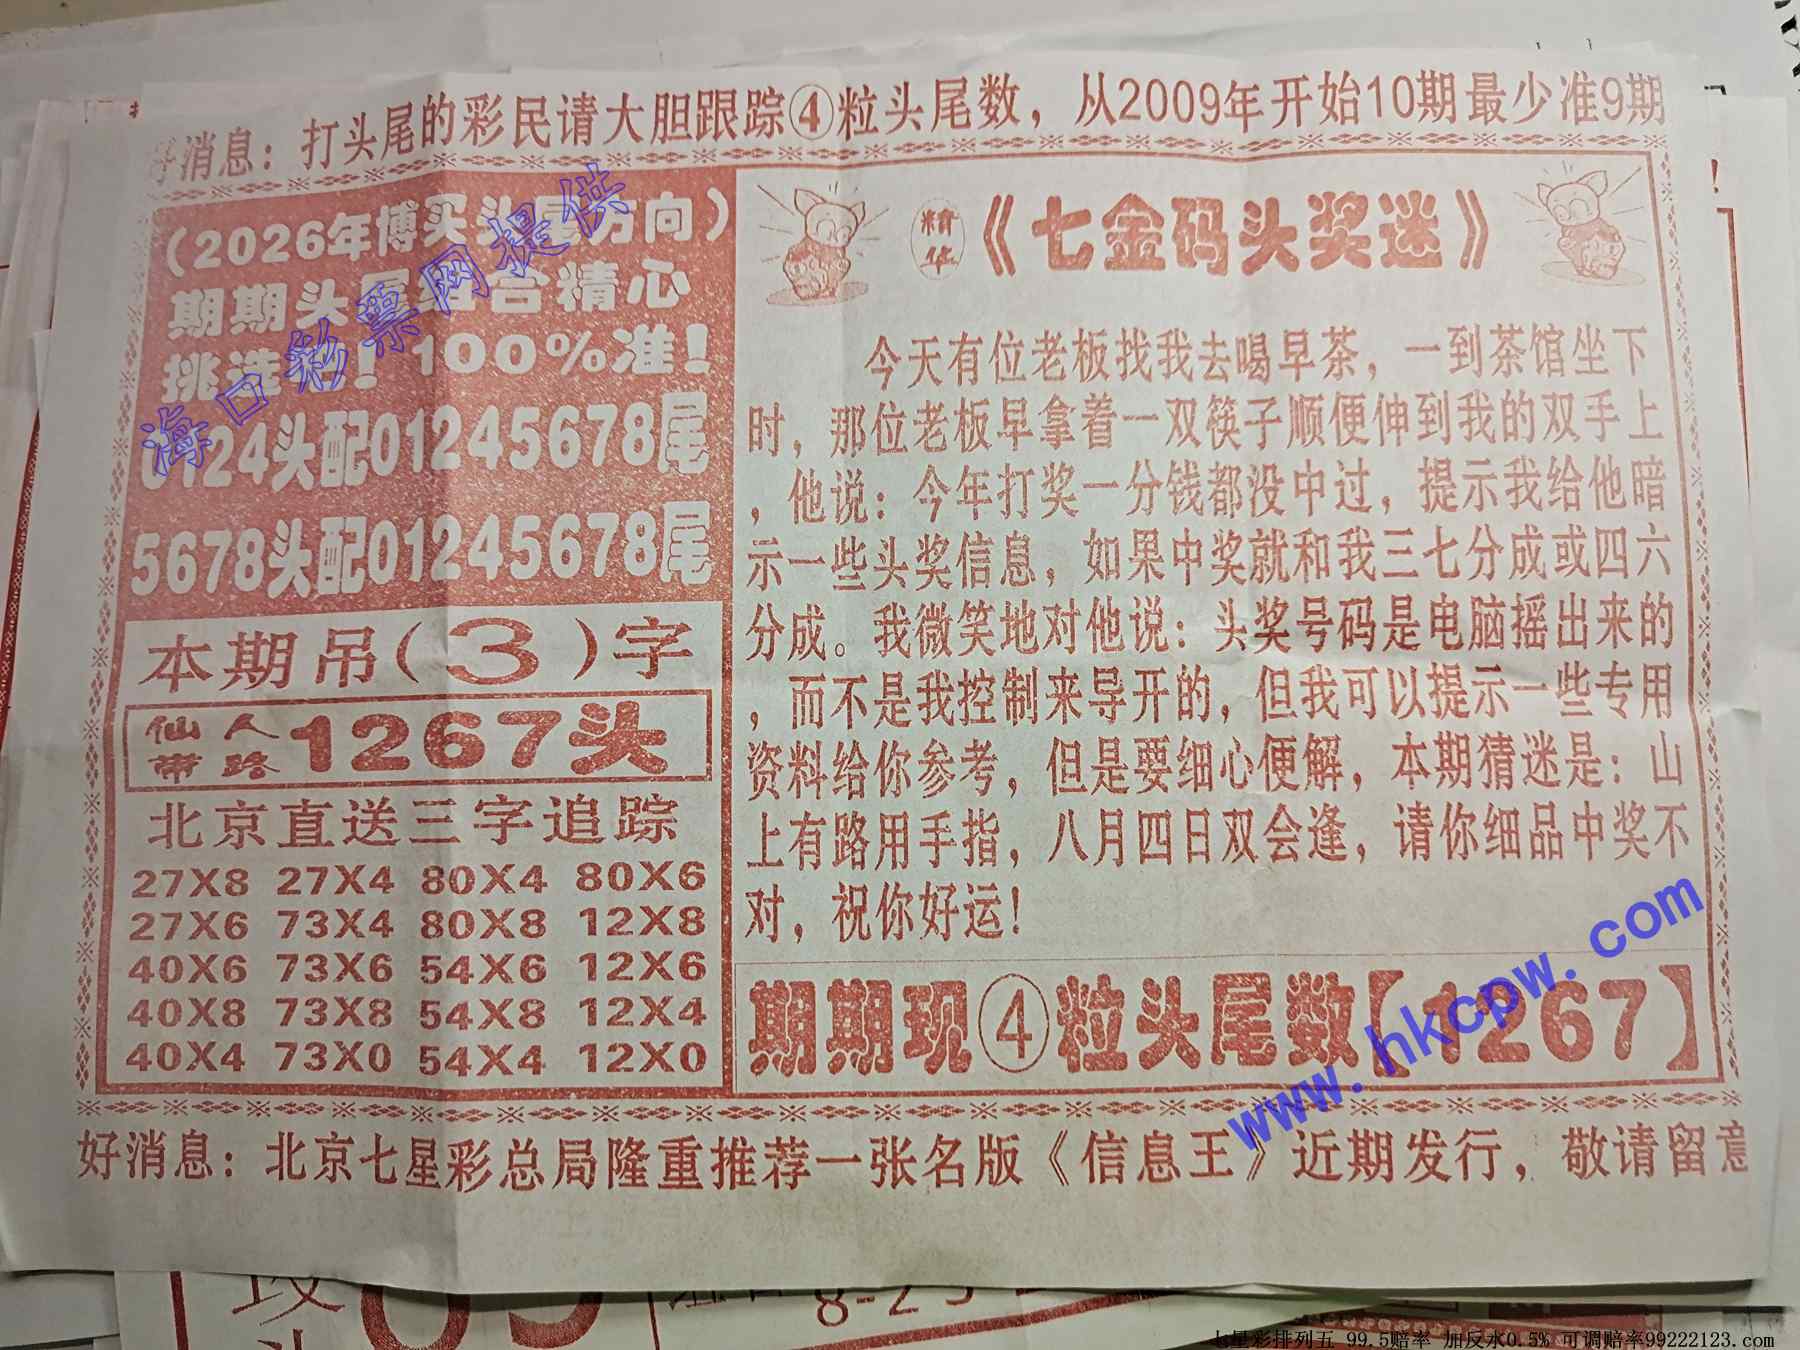 好消息：打头尾的彩民请大胆跟踪④粒头尾数，从2009年开始10期最少准9期
（2026年博买头尾方向）
期期头尾组合精心
挑选出！100%准！
0124头配01245678尾
5678头配01245678尾
海口彩票网提供
本期吊（3）字
仙人带路 1267头
北京直送三字追踪
27X8 27X4 80X4 80X6
27X6 73X4 80X8 12X8
40X6 73X6 54X6 12X6
40X8 73X8 54X8 12X4
40X4 73X0 54X4 12X0
精华《七金码头奖迷》
今天有位老板找我去喝早茶，一到茶馆坐下
时，那位老板早拿着一双筷子顺便伸到我的双手上
，他说：今年打奖一分钱都没中过，提示我给他暗
示一些头奖信息，如果中奖就和我三七分成或四六
分成。我微笑地对他说：头奖号码是电脑摇出来的
，而不是我控制来导开的，但我可以提示一些专用
资料给你参考，但是要细心便解，本期猜迷是：山
上有路用手指，八月四日双会逢，请你细品中奖不
对，祝你好运！
期期现④粒头尾数【1267】
www.hkcpw.com
好消息：北京七星彩总局隆重推荐一张名版《信息王》近期发行，敬请留意
8-25
七星彩排列五 99.5赔率 加反水0.5% 可调赔率99222123.com